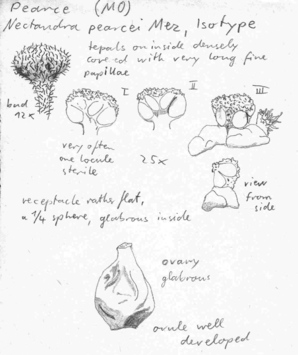 Pearce (MO)
Nectandra pearcei Mez, Isotype
tepals on inside densely
covered with very long fine
papillae
bud
12x
I
II
III
very often
one locule
sterile
25x
view
from
side
receptacle rather flat,
a 1/4 sphere, glabrous inside
ovary
glabrous
ovule well
developed